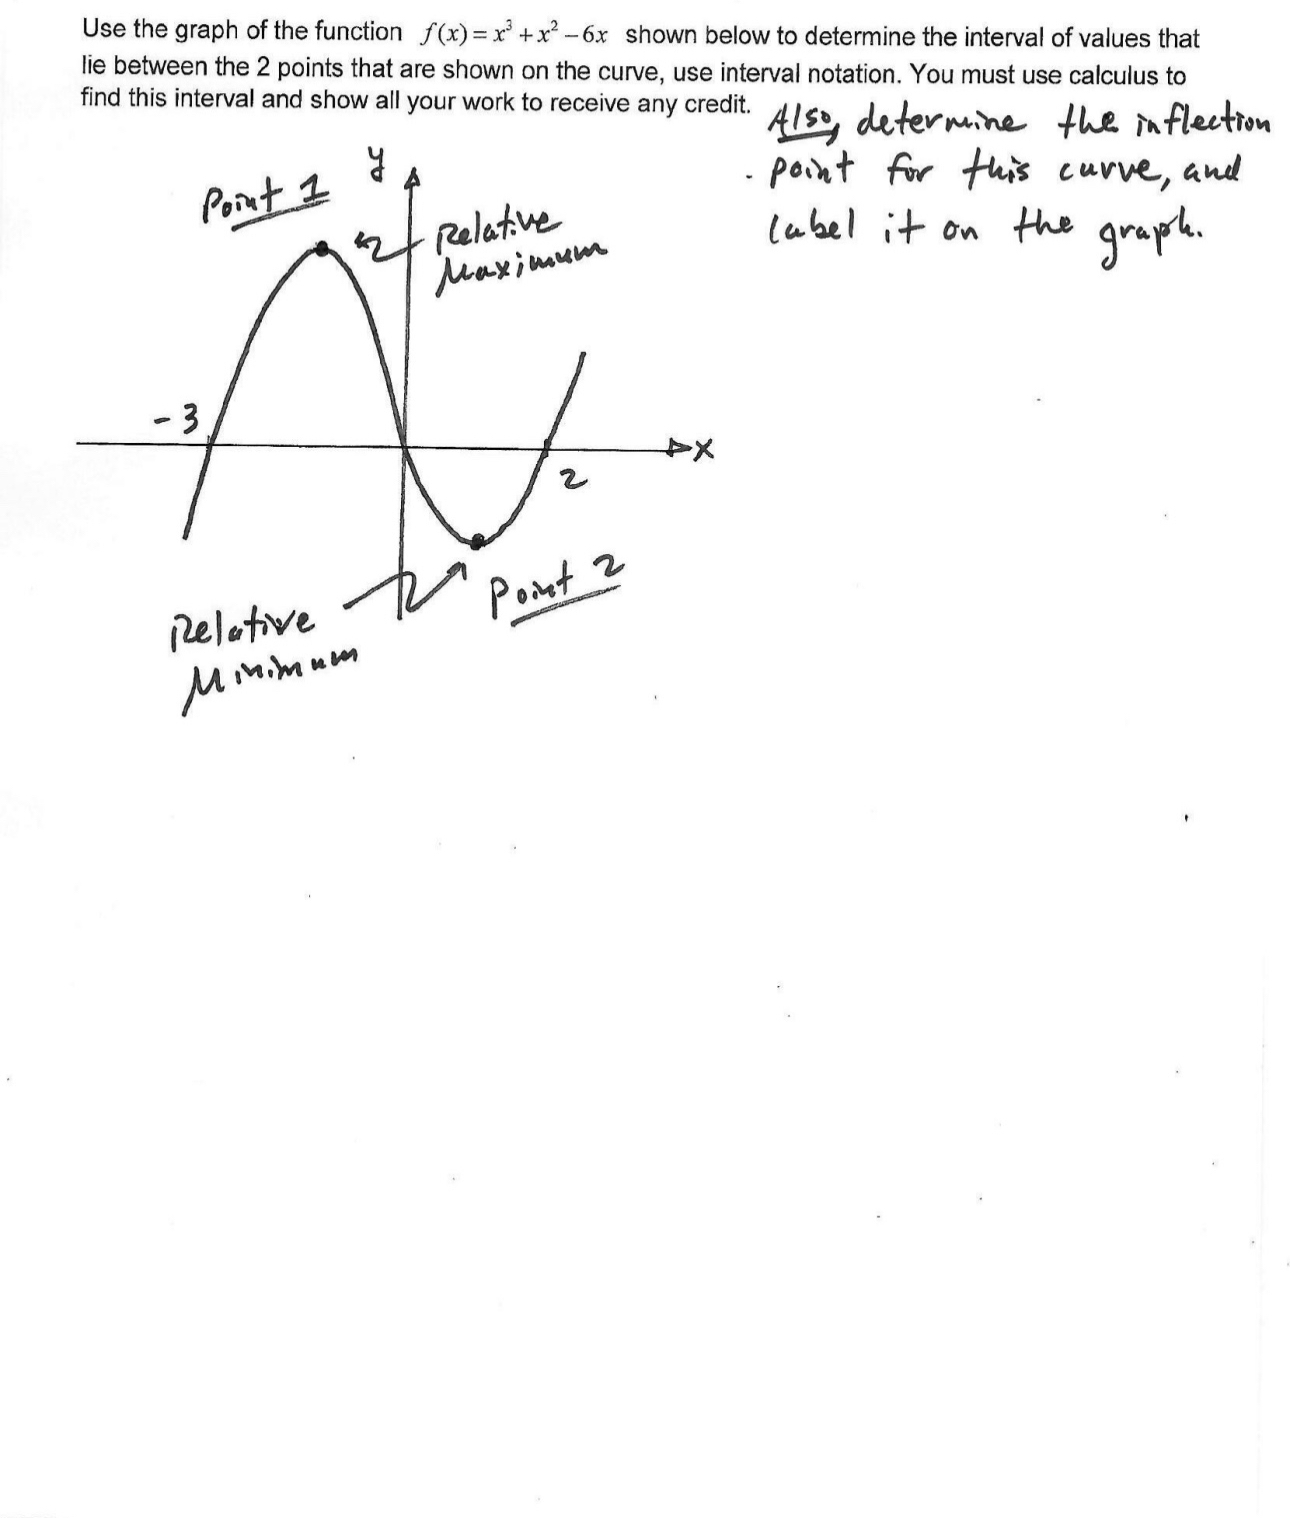 Use the graph of the function f(x) = x³ + x² – 6x shown below to determine the interval of values that
lie between the 2 points that are shown on the curve, use interval notation. You must use calculus to
find this interval and show all your work to receive any credit.
Also, determine the inflection
point for this curve, and
label it on the graph.
y
Point 1
Relative
Maximum
-3
x
2
Point 2
Relative
Minimum